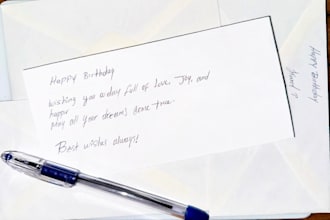 Happy Birthday
wishing you a day full of Love, Joy, and
happy
pray all your dreams come true.
Best wishes always!
Happy Birthday